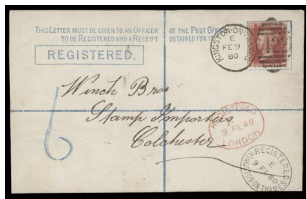 THIS LETTER MUST BE GIVEN TO AN OFFICER OF THE POST OFFICE
TO BE REGISTERED AND A RECEIPT OBTAINED FOR
REGISTERED.
KINGSTON-ON
E
FE 9
80
Winch Bros
Stamp Importers
Colchester
6
REGISTERED
LONDON
REGISTERED
E